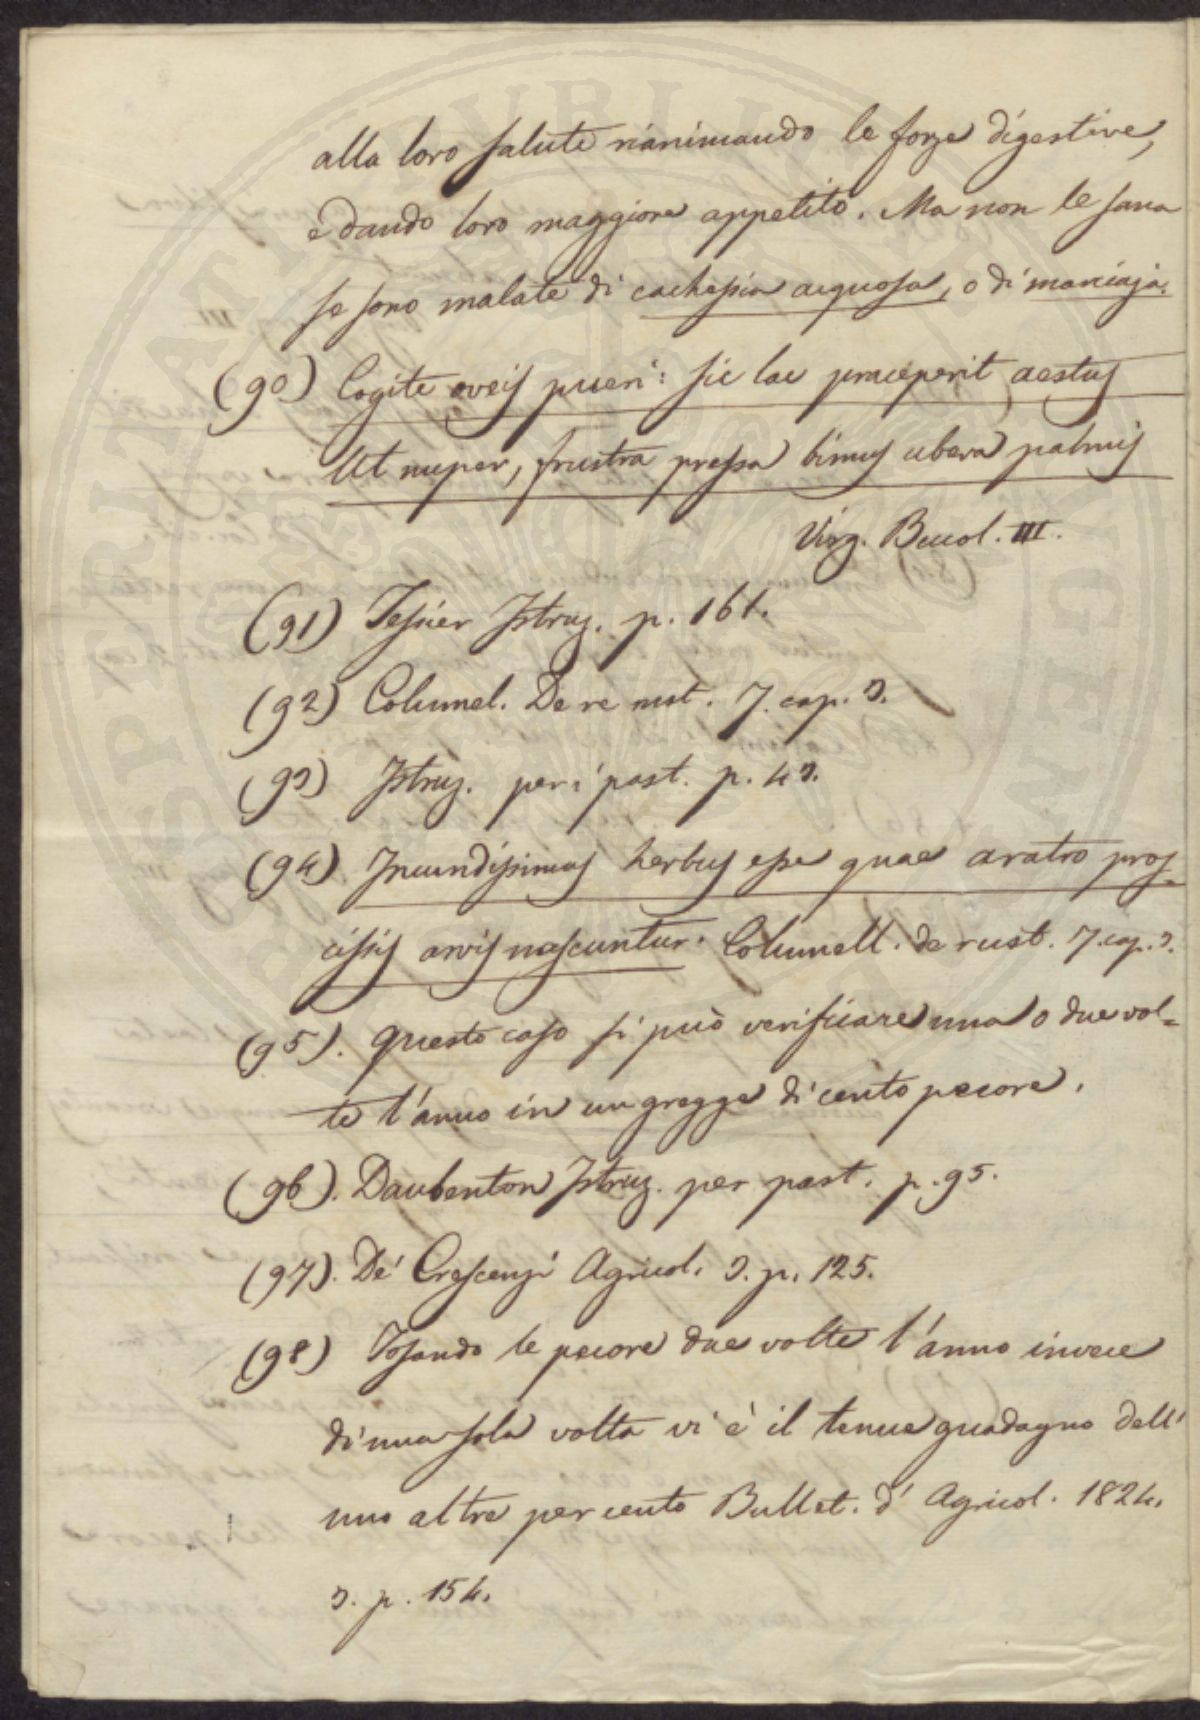 alla loro salute rianimando le forze digestive,
e dando loro maggiore appetito. Ma non le sana
se sono malate di cachessia acquosa, o di marciaja.
(90) Cogite oveis pueri: sic lac praeceperit aestus
Ut nuper, frustra pressa bimus ubera palmis
Virg. Bucol. III.
(91) Tessier Istruz. p. 161.
(92) Columel. De re rust. 7. cap. 3.
(93) Istruz. per i past. p. 43.
(94) Jucundissimas herbas esse quae aratro pros=
cissis arvis nascuntur. Columell. de rust. 7. cap. 3.
(95). questo caso si può verificare una o due vol=
te l'anno in un gregge di cento pecore.
(96). Daubenton Istruz. per past. p. 95.
(97). De' Crescenzi Agricol. 3. p. 125.
(98) Tosando le pecore due volte l'anno invece
di una sola volta vi è il tenue guadagno dell'
uno altre per cento Bullet. d' Agricol. 1824.
3. p. 154.